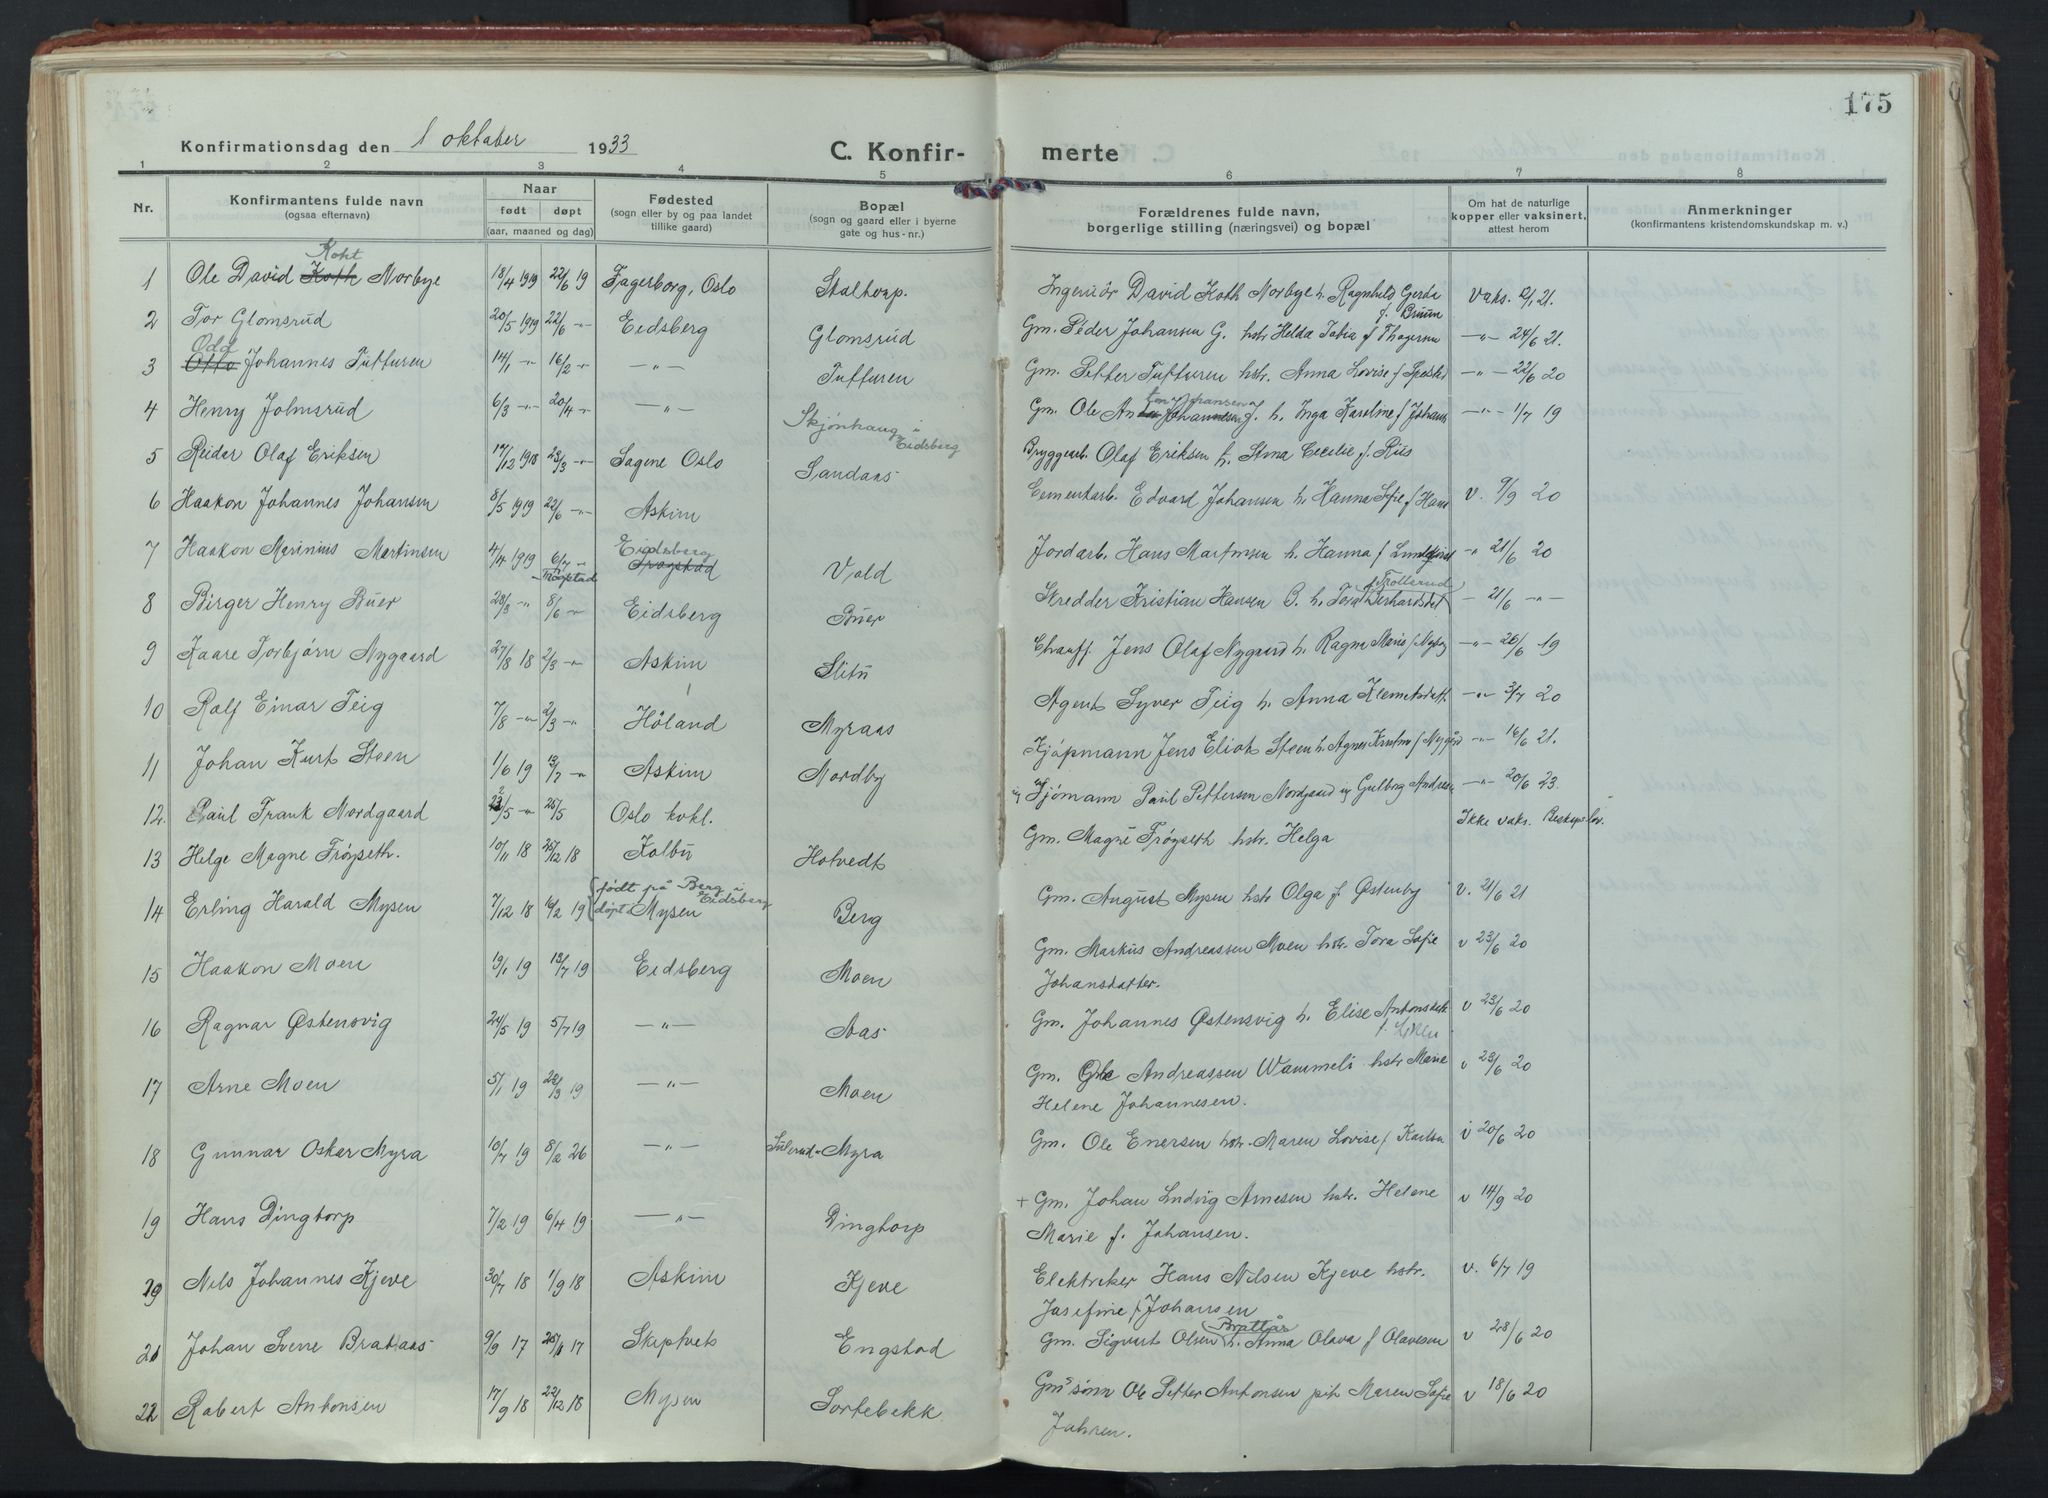 175
Konfirmationsdag den 1 oktober 1933
C. Konfir- merte
1 2 3 4 5 6 7 8
Nr. Konfirmantens fulde navn (ogsaa efternavn) Naar født døpt (aar, maaned og dag) Fødested (sogn eller by og paa landet tillike gaard) Bopæl (sogn og gaard eller i byerne gate og hus-nr.) Forældrenes fulde navn, borgerlige stilling (næringsvei) og bopæl Om hat de naturlige kopper eller vaksinert, attest herom Anmerkninger (konfirmantens kristendomskundskap m. v.)
Koht
1 Ole David Koth Norbye 18/4 1919 22/6 19 Fagerborg, Oslo Staltorp. Ingeniör David Koth Norbye h. Ragnhild Gerda f. Bruun Vaks. 21.
2 Tor Glomsrud 20/5 1919 22/6 -"- Eidsberg Glomsrud Gm. Peder Johansen G. hstr Helda Tobia f Thøgersen -"- 24/6 21.
Odd
3 Otto Johannes Tutturen 14/1 -"- 16/2 -"- -"- Tutturen Gm. Petter Tutturen hstr. Anna Lovise f -"- 22/6 20
4 Henry Jolmsrud 6/3 -"- 20/4 -"- -"- Skjønhaug i Eidsberg Gm. Ole Johannesen J. h. Inga Karoline f Johans -"- 1/7 19
5 Reidar Olaf Eriksen 17/12 1918 23/3 -"- Sagene Oslo Sandaas Bryggearb. Olaf Eriksen h. Stina Cecilie f. Rus
6 Haakon Johannes Johansen 8/5 1919 22/6 -"- Askim Cementarb. Edvard Johansen h. Hanna Sofie f Hans V. 9/9 20
7 Haakon Marinius Martinsen 4/4 1919 6/7 -"- Trøgstad Eidsberg Trøgstad Vold Jordarb. Hans Martinsen h. Hanna f Lundqvist -"- 21/6 20
8 Birger Henry Buer 28/3 -"- 8/6 -"- Eidsberg Buer Skredder Kristian Hansen B. h. Tora Gerhardsdat f Trollerud - 21/6 -"-
9 Kaare Torbjørn Nygaard 27/8 18 2/3 -"- Askim Slitu Chauff. Jens Olaf Nygaard h. Ragna Marie f Nyby -"- 26/6 19
10 Ralf Einar Teig 7/8 -"- 2/3 -"- Höland Myraas Agent Syver Teig h. Anna Klemetsdatt. -"- 3/7 20
11 Johan Kurt Steen 1/6 19 13/7 -"- Askim Nordby Kjøpmann Jens Eliot Steen h. Agnes Kristine f Nygård -"- 16/6 21.
12. Paul Frank Nordgaard 23/5 -"- 25/5 Oslo kvkl. Sjømann Paul Pettersen Nordgaard og Gulborg Andresen -"- 20/6 23.
13 Helge Magne Frøyseth. 10/11 18 25/12 18 Kolbu Hotvedt Gm. Magne Frøyseth hstr. Helga Ikke vaks.
14 Erling Harald Mysen 7/12 18 16/2 19 (født på Berg i Eidsberg døpt i Mysen Berg Gm. August Mysen hstr Olga f. Østenby V. 21/6 21
15 Haakon Moen 19/1 19 13/7 19 Eidsberg Moen Gm. Markus Andreassen Moen hstr. Tora Sofie v 23/6 20
Johansdatter.
16 Ragnar Østensvig 24/5 19 5/7 19 -"- Aas Gm. Johannes Østensvig h. Elise Antonsdatt v 23/6 20
17 Arne Moen 5/1 19 23/3 19 -"- Moen Gm. Ole Andreassen Wammeli hstr Marie v 23/6 20
Helene Johannesen.
18 Gunnar Oskar Myra 10/7 19 8/2 26 -"- Myra Gm. Ole Enersen hstr. Maren Lovise f Karlsen v 20/6 20
19 Hans Dingtorp 7/2 19 6/4 19 -"- Dingtorp + Gm. Johan Ludvig Arnesen hstr. Helene v 14/9 20
Marie f. Johansen.
20 Nils Johannes Kjeve 30/7 18 1/9 18 Askim Kjeve Elektriker Hans Nilsen Kjeve hstr. v. 6/7 19
Josefine f Johansen
21 Johan Svene Brataas 9/9 17 17 Skiptvet Engstad Gm. Sigvart Olsen Brattås h. Anna Olava f Olavesen v 28/6 20
22 Robert Antonsen 17/9 18 22/12 18 Mysen Sortebekk Gm's sønn Ole Petter Antonsen pik Maren Sofie v 18/6 20
Juhren.